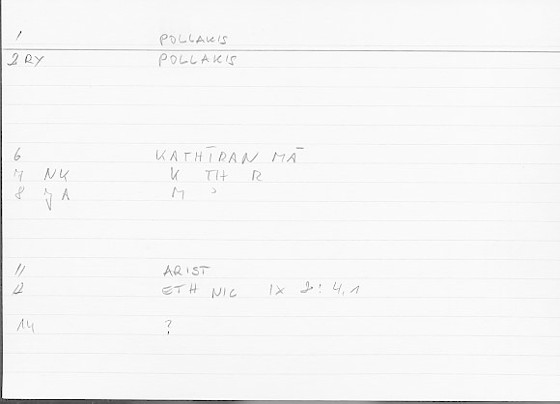 1 POLLAKIS
2 RY POLLAKIS
6 KATHĪRAN MĀ
7 NK K TH R
8 M ˀ
11 ARIST
12 ETH NIC IX 8: 4,1
14 ?